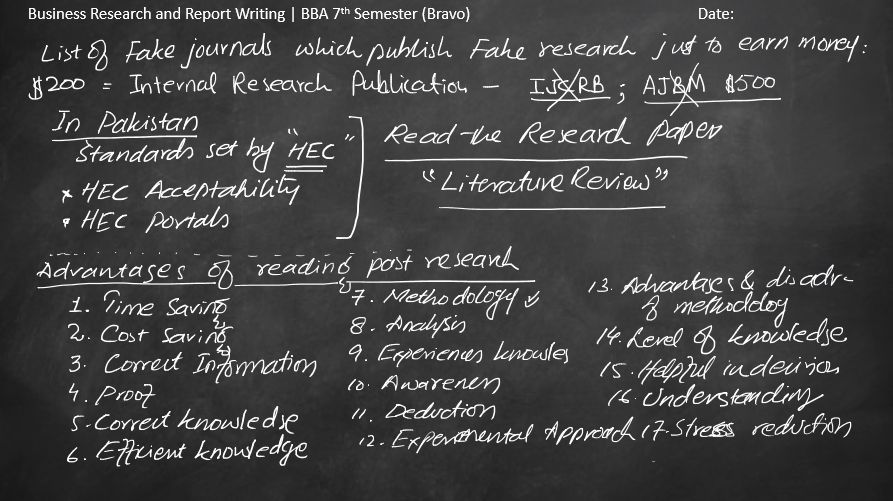 Business Research and Report Writing | BBA 7th Semester (Bravo) Date:
List of Fake journals which publish Fake research just to earn money:
$200 = Internal Research Publication – IJSRB ; AJBM $500
In Pakistan
Standards set by "HEC"
x HEC Acceptability
• HEC portals
Read the Research paper
"Literature Review"
Advantages of reading past research
1. Time Saving
2. Cost Saving
3. Correct Information
4. Proof
5. Correct knowledge
6. Efficient knowledge
7. Methodology ✓
8. Analysis
9. Experiences knowles
10. Awareness
11. Deduction
12. Experimental Approach
13. Advantages & disadv-
of methodology
14. Level of knowledge
15. Helpful in decision
16. Understanding
17. Stress reduction